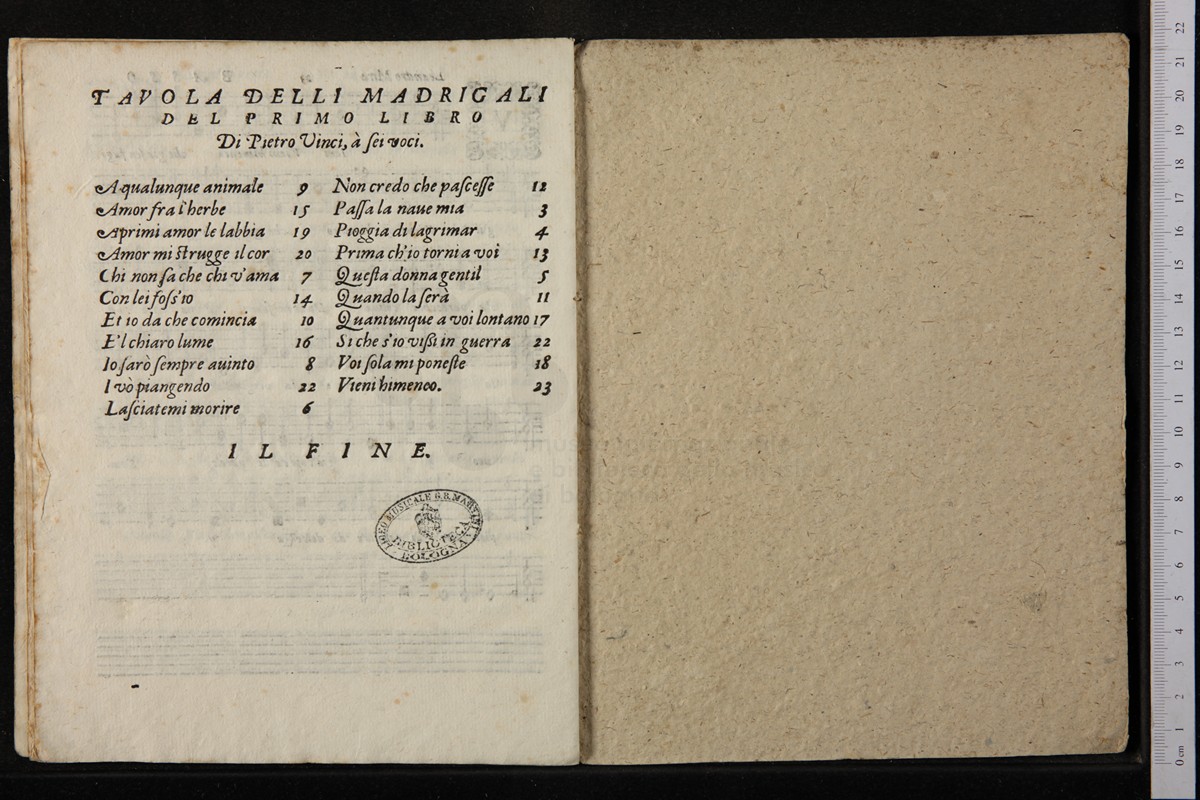 TAVOLA DELLI MADRIGALI
DEL PRIMO LIBRO
Di Pietro Vinci, à ſei voci.
A qualunque animale 9
Amor fra l'herbe 15
Aprimi amor le labbia 19
Amor mi ſtrugge il cor 20
Chi non ſa che chi v'ama 7
Con lei foſs'io 14
Et io da che comincia 10
E'l chiaro lume 16
Io ſarò ſempre auinto 8
I vò piangendo 22
Laſciatemi morire 6
Non credo che paſceſſe 12
Paſſa la naue mia 3
Pioggia di lagrimar 4
Prima ch'io torni a voi 13
Queſta donna gentil 5
Quando la ſerà 11
Quantunque a voi lontano 17
Si che s'io viſsi in guerra 22
Voi ſola mi poneſte 18
Vieni himeneo. 23
IL FINE.
LICEO MUSICALE G. B. MARTINI
BIBLIOTECA
BOLOGNA
22
21
20
19
18
17
16
15
14
13
12
11
10
9
8
7
6
5
4
3
2
1
0 cm